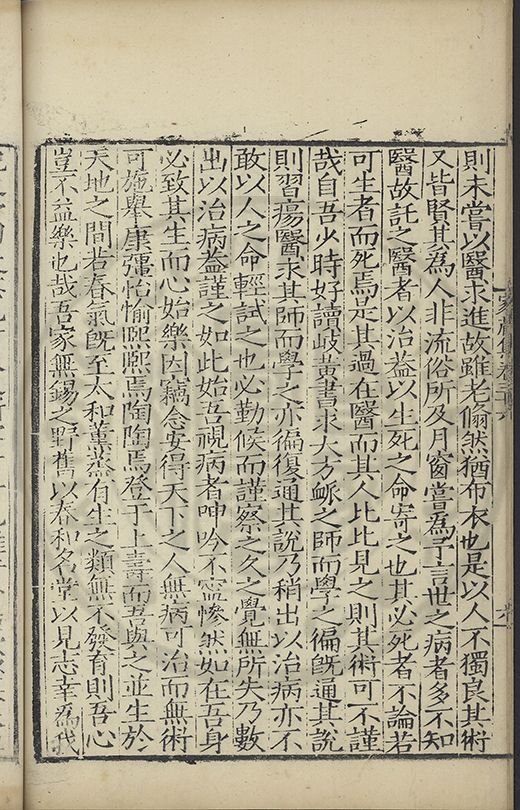 則未嘗以醫求進故雖老翛然猶布衣也是以人不獨良其術
又皆賢其為人非流俗所及月窗嘗為予言世之病者多不知
醫故託之醫者以治葢以生死之命寄之也其必死者不論若
可生者而死焉是其過在醫而其人比比見之則其術可不謹
哉自吾少時好讀岐黃書求大方䘑之師而學之徧旣通其說
則習瘍醫求其師而學之亦徧復通其說乃稍出以治病亦不
敢以人之命輕試之也必勤候而謹察之久之覺無所失乃數
出以治病葢謹之如此始吾視病者呻吟不寍慘然如在吾身
必致其生而心始樂因竊念安得天下之人無病可治而無術
可施舉康彊怡愉熙熙焉陶陶焉登于上壽而吾與之並生於
天地之間若春氣旣至太和薰烝有生之類無不發育則吾心
豈不益樂也哉吾家無錫之野舊以春和名堂以見志幸為我